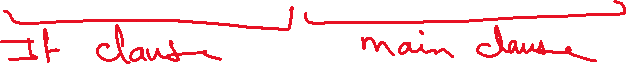 If clause main clause